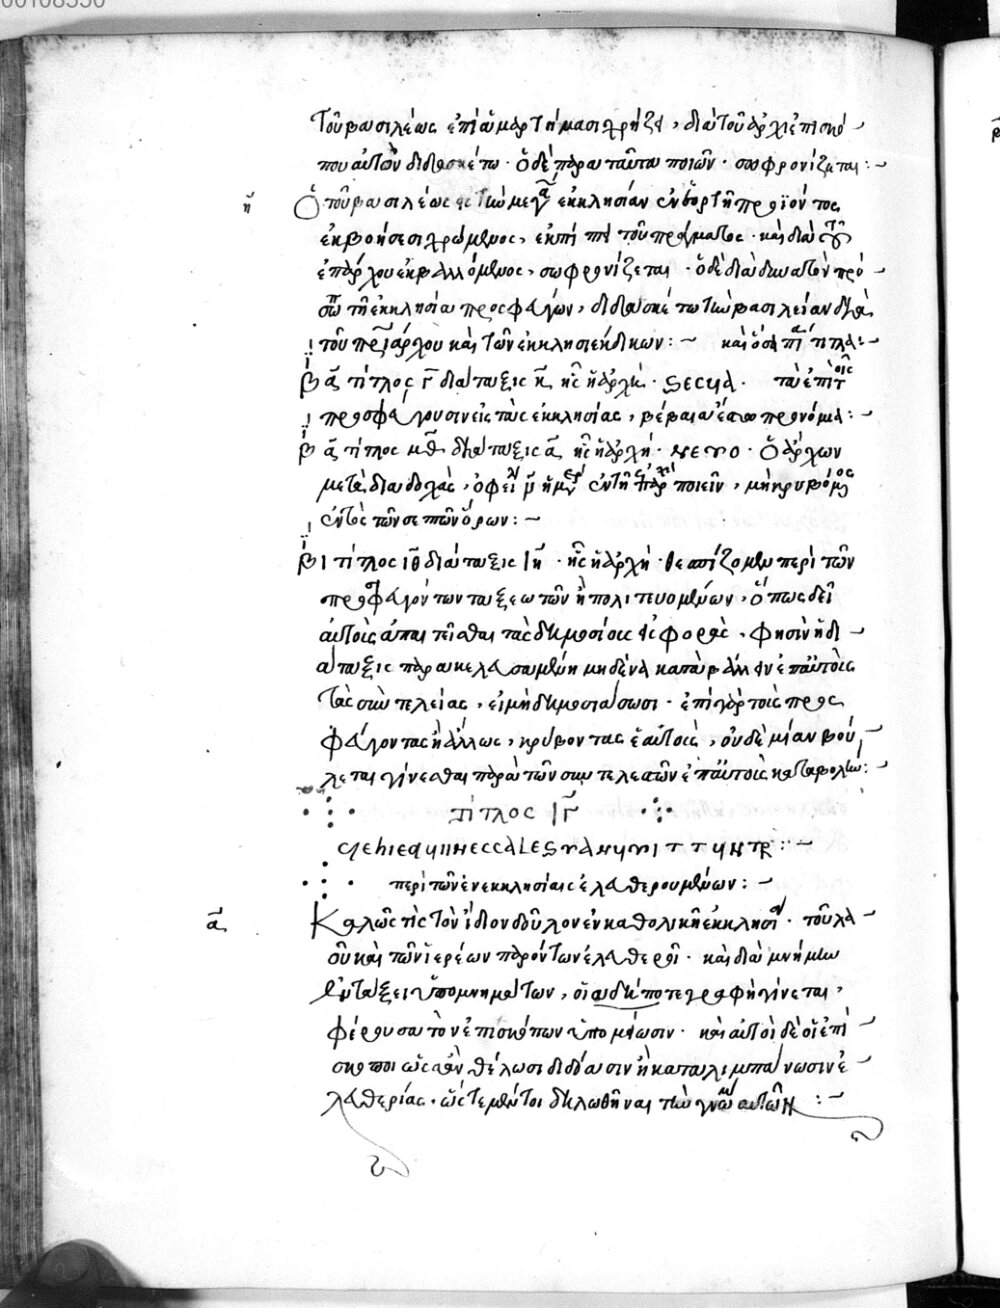 00108550
τοῦ βασιλέως ἐπὶ ἁμαρτήμασι χρῄζει, διὰ τοῦ ἀρχιεπισκό
που αὐτὸν διδασκέτω · ὁ δὲ παρὰ ταῦτα ποιῶν · σωφρονίζεται :
η Ὁ τοῦ βασιλέως εἰς τὴν μεγάλην ἐκκλησίαν ἐν ἑορτῇ προϊόντος
ἐκβοήσεσι χρώμενος, ἐκπίπτει τοῦ πράγματος · καὶ διὰ τοῦ
ἐπάρχου ἐκβαλλόμενος, σωφρονίζεται · ὁ δὲ διὰ δυνατὸν πρό
σωπον τῇ ἐκκλησίᾳ προσφυγών, διδασκέτω τὴν βασιλείαν διὰ
τοῦ πατριάρχου καὶ τῶν ἐκκλησιεκδίκων : καὶ
β α τίτλος γ διάταξις ἧς ἡ ἀρχή · τὰ ἐπὶ τοῖς
προσφεύγουσιν εἰς τὰς ἐκκλησίας, βέβαια ἔστω προνόμια :
β α τίτλος μθ διάταξις α ἧς ἡ ἀρχή · ΝΕΜΟ · Ὁ ἄρχων
μετὰ διαδοχὰς, ὀφείλει ν ἡμέρας ἐν τῇ ἐπαρχίᾳ ποιεῖν, μὴ κρυβόμενος
ἐντὸς τῶν σεπτῶν ὅρων :
βι τίτλος ιθ διάταξις ιη · ἧς ἡ ἀρχή · θεσπίζομεν περὶ τῶν
προσφευγόντων ταξεωτῶν ἢ πολιτευομένων, ὅπως δεῖ
αὐτοὺς ἀπαιτεῖσθαι τὰς δημοσίους εἰσφοράς, φησὶν ἡ δι
άταξις παρακελευσαμένη μηδένα καταβάλλειν ἐπ' αὐτοῖς
τὰς συντελείας, εἰ μὴ δημοσιεύσωσι · ἐπὶ γὰρ τοῖς προσ
φεύγοντας ἢ ἄλλως, κρύβοντας ἑαυτοὺς, οὐδεμίαν βού
λεται γίνεσθαι παρὰ τῶν συντελεστῶν ἐπ' αὐτοῖς καταβολήν :
τίτλος ιγ
περὶ τῶν ἐν ἐκκλησίαις ἐλευθερουμένων :
α Καλῶς τις τὸν ἴδιον δοῦλον ἐν καθολικῇ ἐκκλησίᾳ · τοῦ λα
οῦ καὶ τῶν ἱερέων παρόντων ἐλευθεροῖ · καὶ διὰ μνήμην
ἐν τάξει ὑπομνημάτων, οἵα δήποτε γραφὴ γίνεται,
φέρουσα τὸν ἐπισκόπων ὑποσημείωσιν · καὶ αὐτοὶ δὲ οἱ ἐπί
σκοποι ὡς ἂν θέλωσι διδόασιν ἢ καταλιμπάνωσιν ἐ
λευθερίας, ὥστε μέντοι δηλωθῆναι τὴν γνώμην αὐτῶν :